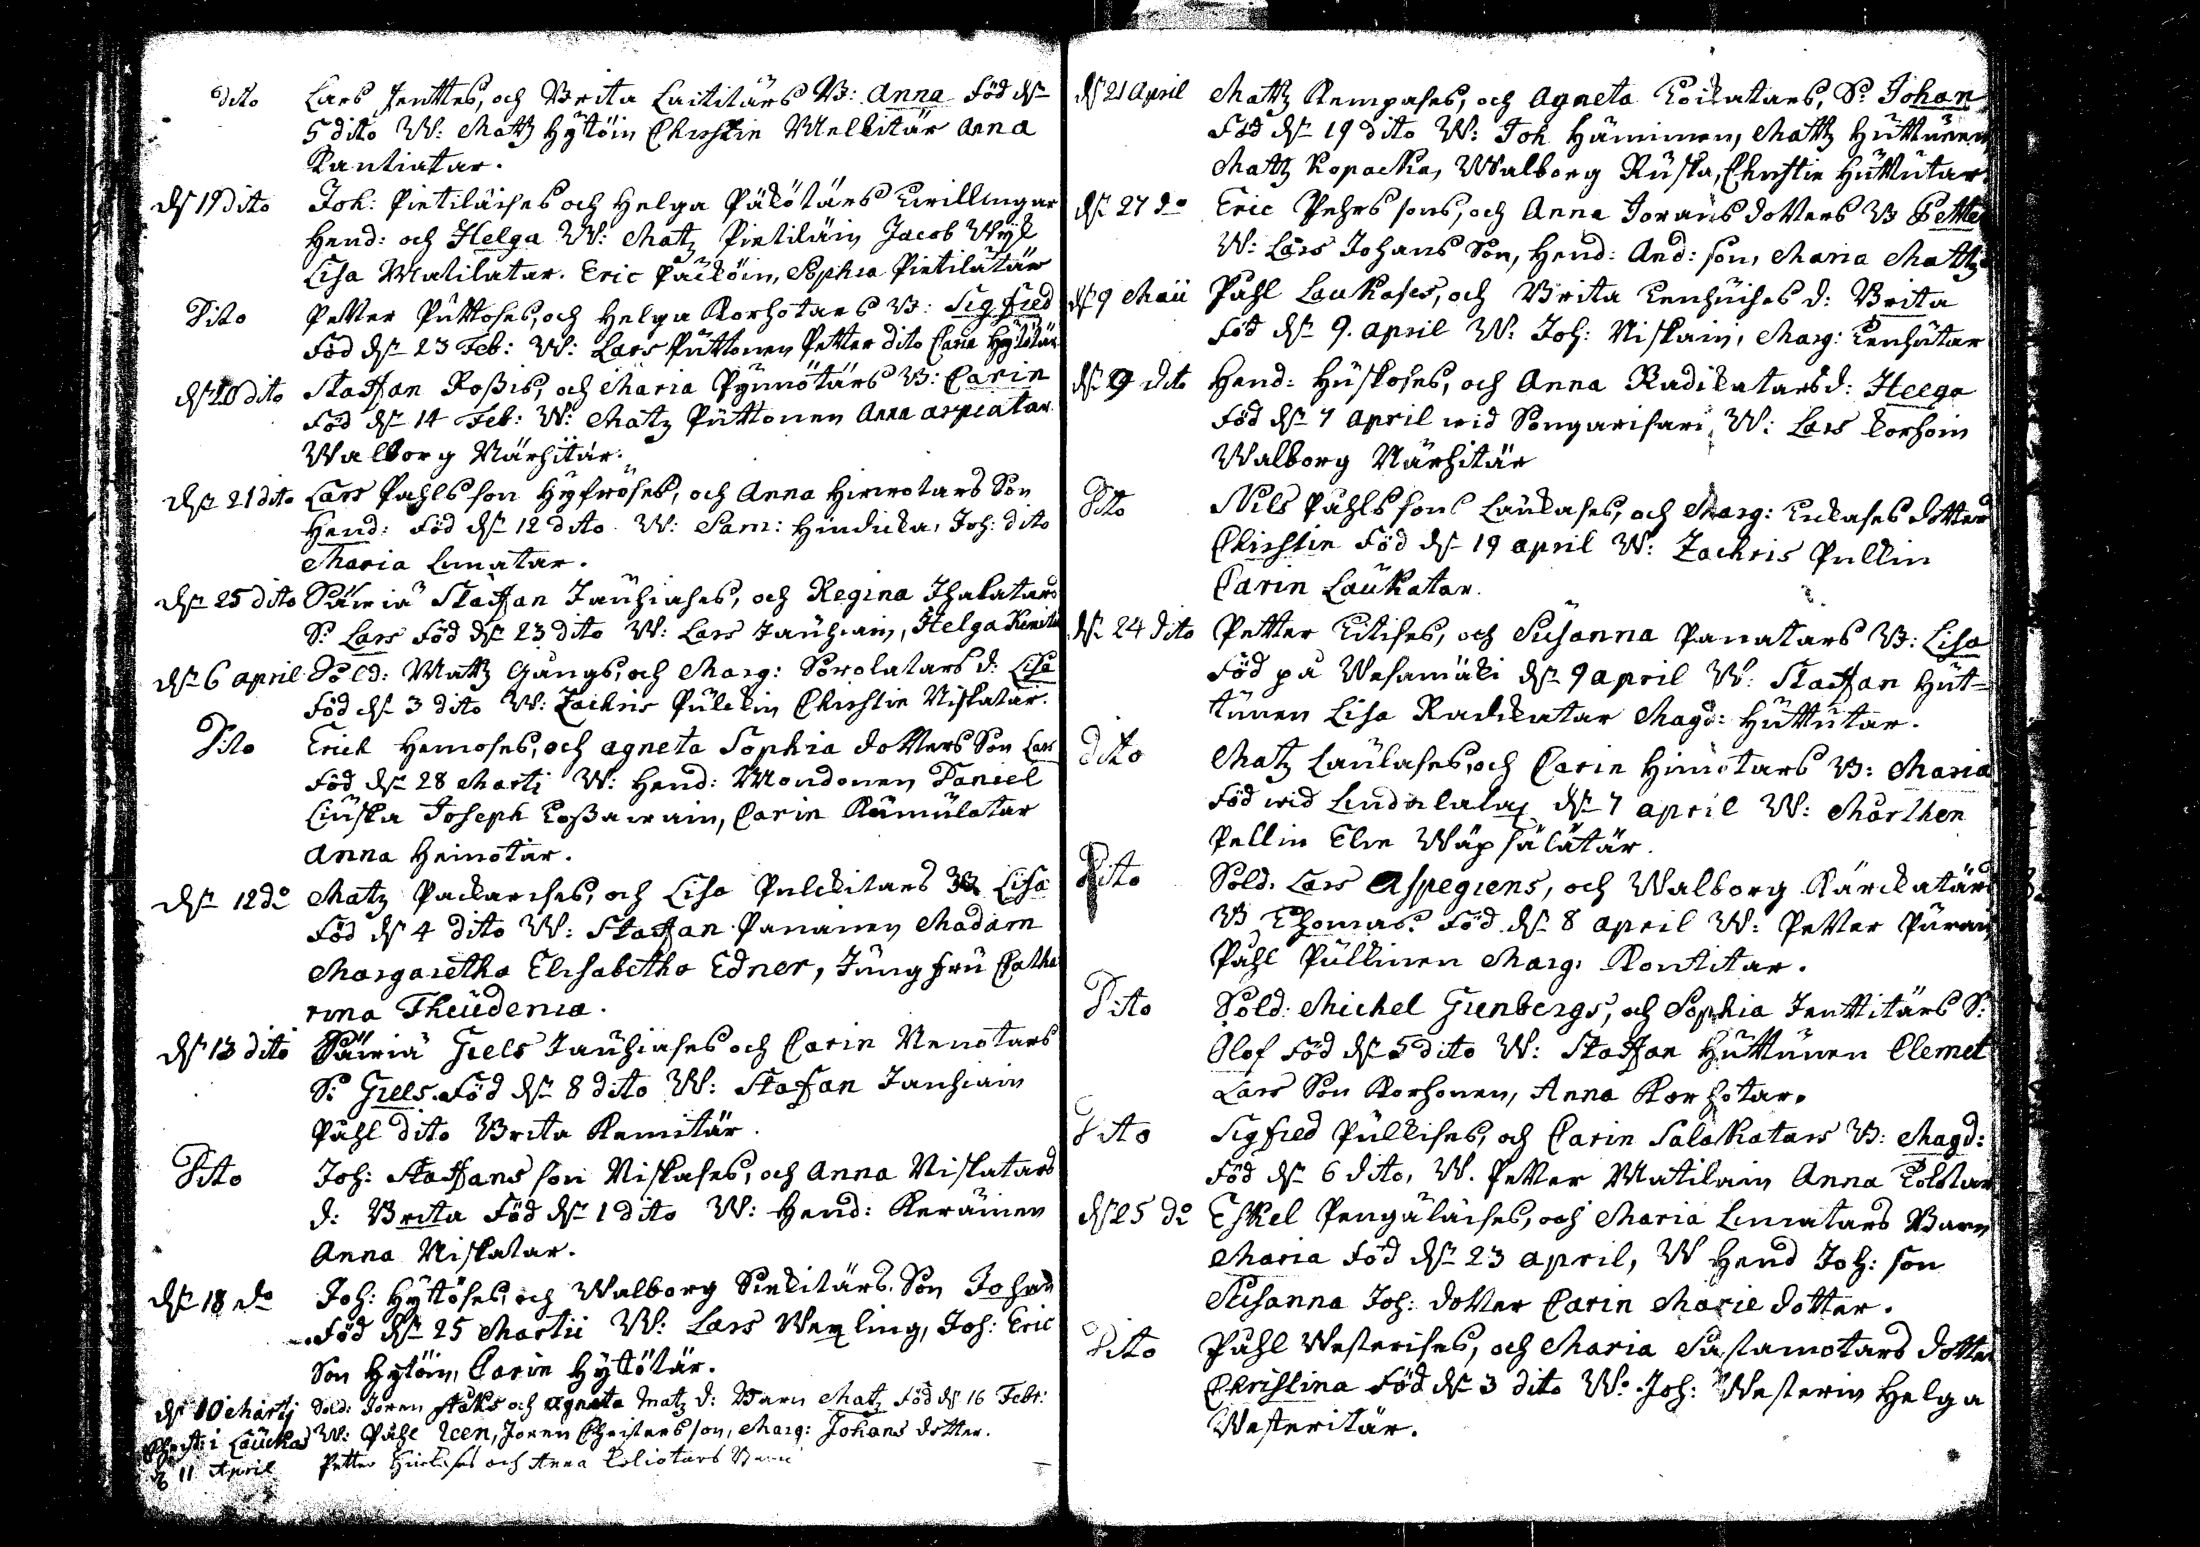 dito Lars Jenttes, och Brita Laititärs B: Anna född dn
5 dito W: Mattz Hÿtöin Christin Mulkitär Anna
Kantiatar.
dn 19 dito Joh: Pietiläises och Helga Päkötärs Twillingar
Hend: och Helga W: Matz Pietiläin Jacob Wÿk
Lisa Matilatar. Eric Päiköin, Sophia Pietilätär
Dito Petter Puttoses, och Helga Korhotars B: Sigfred
född dn 23 Feb: W: Lars Puttonen Petter dito Carin Hÿtötär
dn 20 dito Staffan Roßis, och Maria Pÿnnötärs B: Carin
född dn 14 Feb: W: Matz Puttonen Anna
Walborg Närhitär.
dn 21 dito Lars Påhls son Hÿfröses, och Anna Hirwotars Son
Hend: född dn 12 dito W: Sam: Hindicka, Joh: dito
Maria Lunatar.
dn 25 dito Säiwiä Staffan Jauhiases, och Regina Ihalatars
S: Lars född dn 23 dito W: Lars Jauhiain, Helga
dn 6 april Sold: Mattz Gångs, och Marg: Sorolatars d: Lisa
född dn 3 dito W: Zachris Pulckin Christin Niskatar.
Dito Erich Hemoses, och agneta Sophia dotters Son Lars
född dn 28 Marti W: Hend: Mondonen Daniel
Liuska Joseph Koßawain, Carin Kumulatar
Anna Heinotar.
dn 12 do Matz Packarises, och Lisa Pulckitars B: Lisa
född dn 4 dito W: Staffan Pananen Madam
Margaretha Elisabetha Edner, Jungfru Catha
rina Theudenia.
dn 13 dito Säiwiä Giels Jauhiases och Carin Nenotars
S: Giels. född dn 8 dito W: Staffan Jauhiain
Påhl dito Brita Remitär.
Dito Joh: Staffans son Niskases, och Anna Niskatars
d: Brita född dn 1 dito W: Hend: Keräinen
Anna Niskatar.
dn 18 do Joh: Hÿttöses, och Walborg Sinkitärs. Son Johan
född dn 25 Martii W: Lars Wexling, Joh: Eric
Son Hÿtöin, Carin Hÿtötär.
dn 10 Martj Sold: Jören Staks och agneta Matz d: Barn Matz född dn 16 Febr:
Christ: i Lauckas W: Påhl Reen, Jören Christers son, Marg: Johans dotter.
d 11 April Petter och Anna Koliotars Barn
dn 21 April Mattz Kempases, och Agneta Koikatars, S: Johan
född dn 19 dito W: Joh Häminen, Mattz Huttunen
Mattz Kopacka, Walborg Ruska, Christin Huttutar.
dn 27 do Eric Pehrs sons, och Anna Jorans dotters B Petter
W: Lars Johans Son, Hend: And: son, Maria Mattz
dn 9 Maii Påhl Laukases, och Brita Kenhuises d: Brita
född dn 9. april W: Joh: Niskain, Marg: Kenhutar
dn 9 dito Hend: Huskoses, och Anna Radikatars d: Helga
född dn 7 april wid Songarisari, W: Lars Korhoin
Walborg Närhitär
Dito Nils Påhls sons Laukases, och Marg: Kukases dotter
Christin född dn 19 april W: Zachris Pulkin
Carin Laukatar.
dn 24 dito Petter Kitises, och Susanna Panatars B: Lisa
född på Wesamäki dn 9 april W: Staffan Hut=
tunen Lisa Radikatar Magd: Huttutar.
dito Matz Laukases, och Carin Himotars B: Maria
född wid dn 7 april W: Mårthen
Pellin Elin Wäpsälätär.
Dito Sold. Lars Aspegrens, och Walborg Kärckatärs
B Thomas. född dn 8 april W: Petter Puran
Påhl Pullinen Marg: Kontitar.
Dito Sold: Michel Grenbergs, och Sophia Jenttitärs S:
Olof född dn 5 dito W: Staffan Huttunen Clemet
Lars Son Korhonen, Anna Korhotar.
Dito Sigfred Pulkises, och Carin Salakatars B: Magd:
född dn 6 dito, W. Petter Matilain Anna
dn 25 do Eskel Pengäläises, och Maria Limatars Barn
Maria född dn 23 april, W Hend Joh: son
Susanna Joh: dotter Carin Marie dotter.
Dito Påhl Westerises, och Maria Sastamotars dotter
Christina född dn 3 dito W. Joh: Westerin Helga
Westeritär.